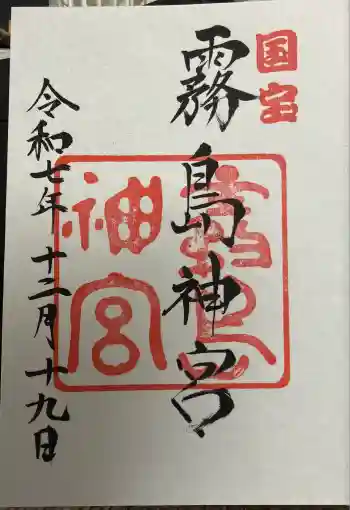 国宝
霧島神宮
霧島神宮
令和七年 十二月十九日